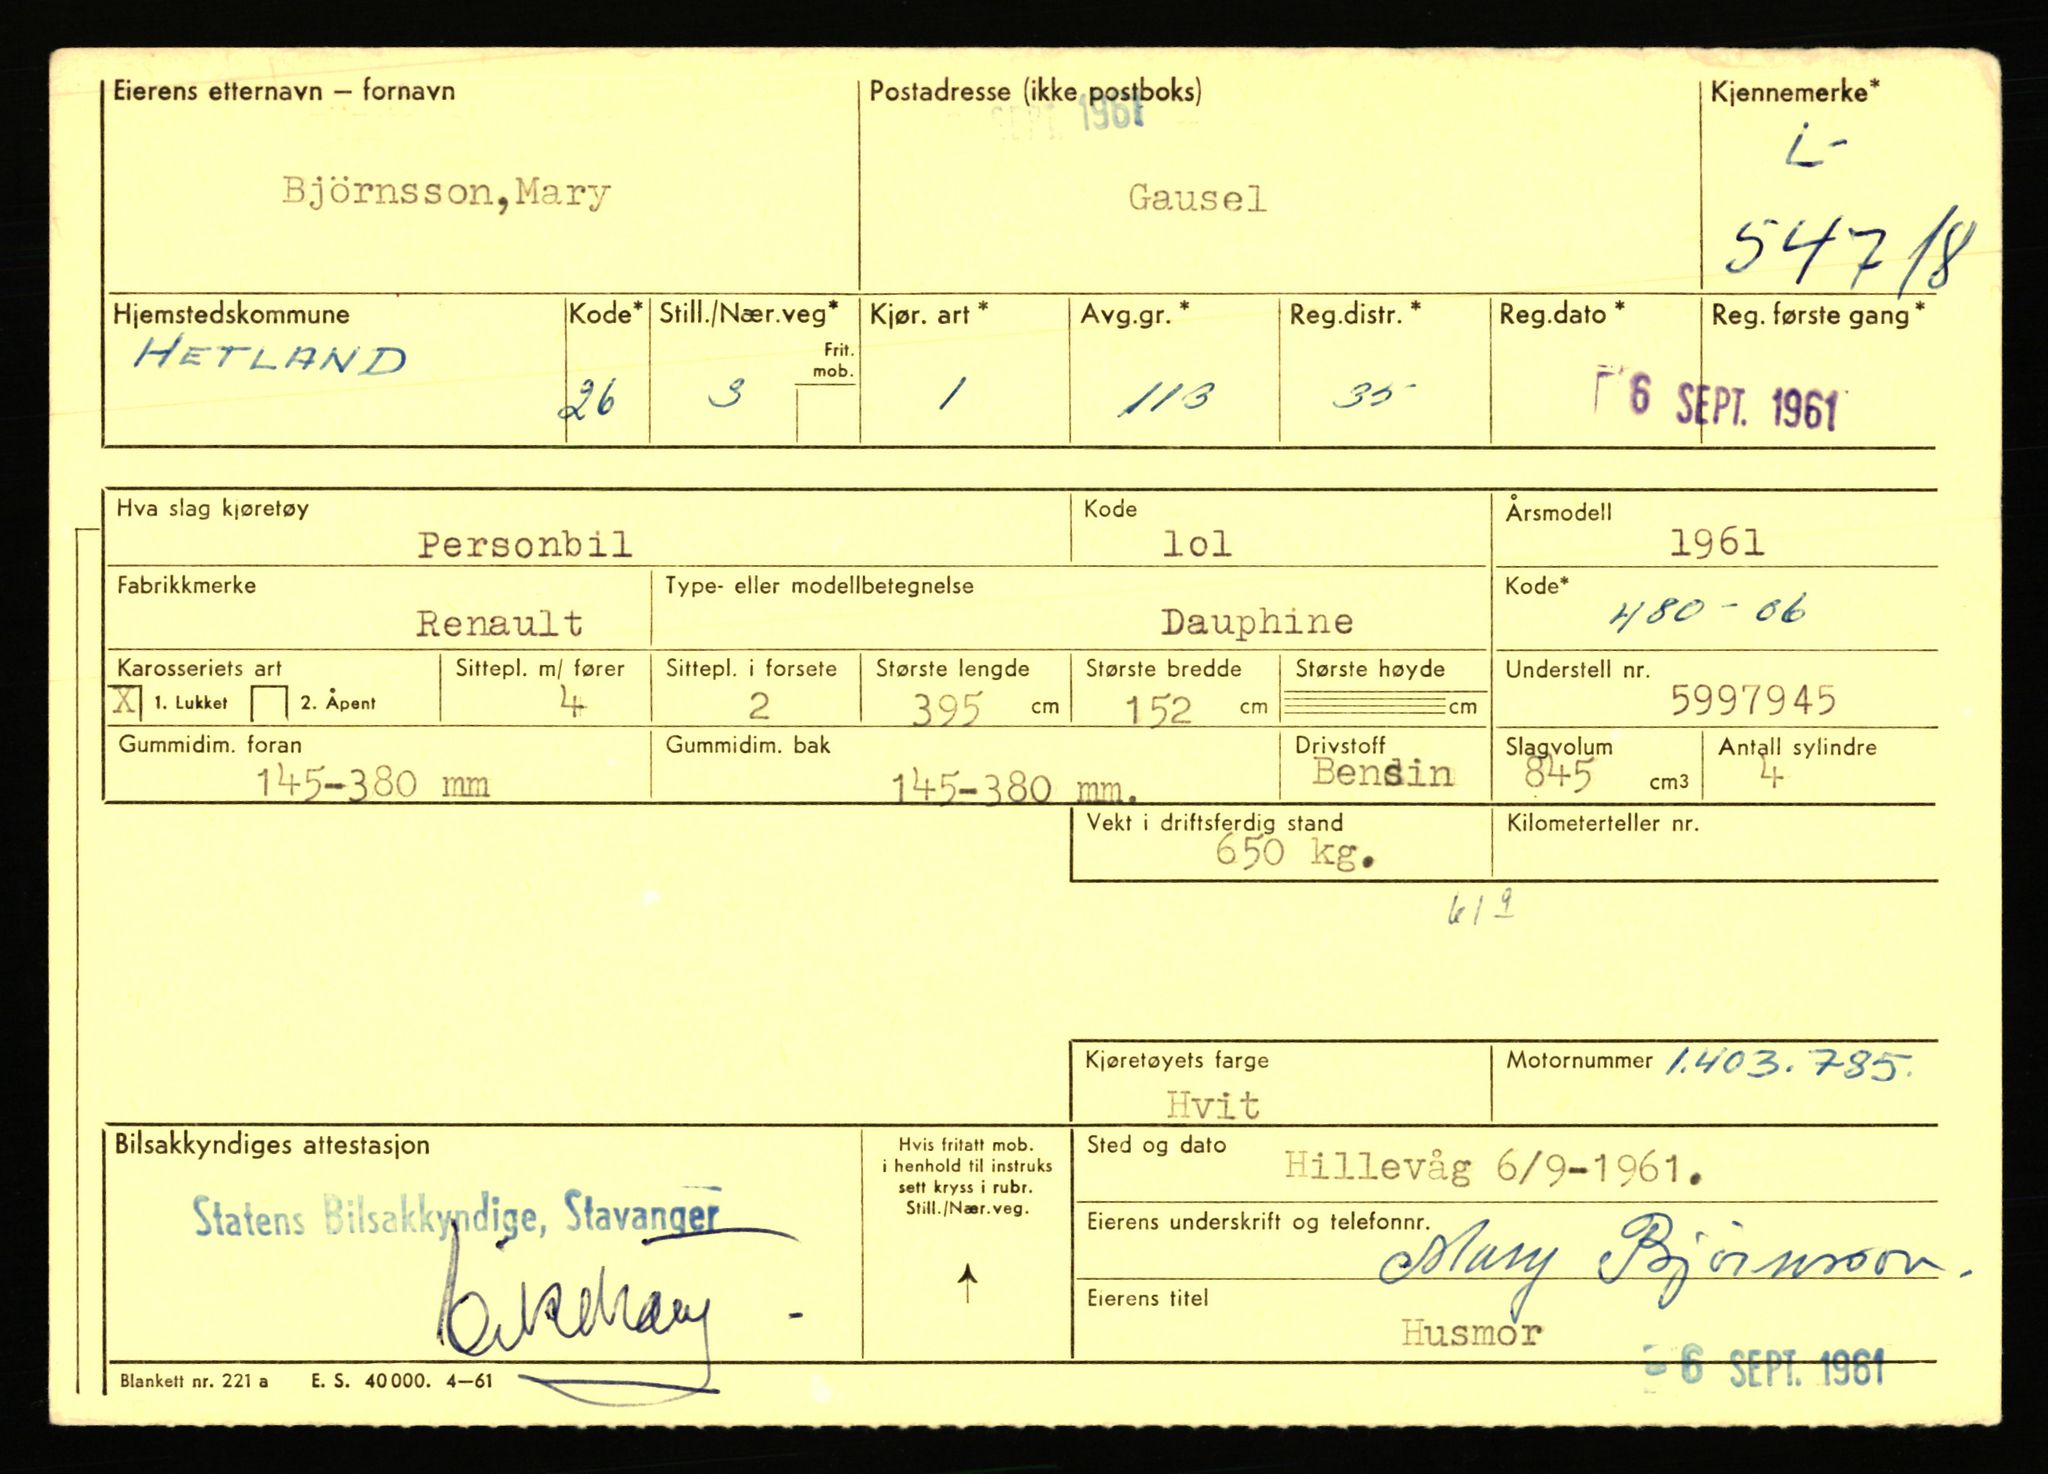 Eierens etternavn – fornavn
Björnsson,Mary
Postadresse (ikke postboks)
SEPT. 1961
Gausel
Kjennemerke*
L-
54718
Hjemstedskommune
HETLAND
Kode*
26
Still./Nær.veg*
Frit.
mob.
3
Kjør. art *
1
Avg.gr. *
113
Reg.distr. *
35
Reg.dato *
Reg. første gang *
6 SEPT. 1961
Hva slag kjøretøy
Personbil
Kode
lol
Årsmodell
1961
Fabrikkmerke
Renault
Type- eller modellbetegnelse
Dauphine
Kode*
480-06
Karosseriets art
X 1. Lukket 2. Åpent
Sittepl. m/ fører
4
Sittepl. i forsete
2
Største lengde
395 cm
Største bredde
152 cm
Største høyde
cm
Understell nr.
5997945
Gummidim. foran
145-380 mm
Gummidim. bak
145-380 mm.
Drivstoff
Bensin
Slagvolum
845 cm3
Antall sylindre
4
Vekt i driftsferdig stand
650 kg.
Kilometerteller nr.
61 9
Kjøretøyets farge
Hvit
Motornummer 1.403.785.
Bilsakkyndiges attestasjon
Statens Bilsakkyndige, Stavanger
Hvis fritatt mob.
i henhold til instruks
sett kryss i rubr.
Still./Nær.veg.
Sted og dato
Hillevåg 6/9-1961.
Eierens underskrift og telefonnr.
Mary Björnsson.
Eierens titel
Husmor
- 6 SEPT. 1961
Blankett nr. 221 a E. S. 40 000. 4—61